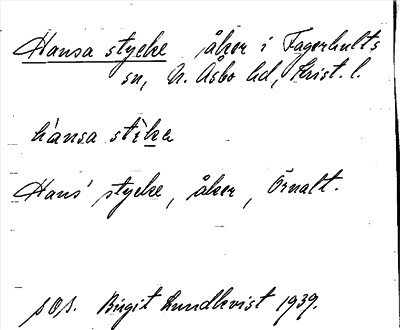 Hansa stycke åker i Fagerhults
sn, N. Åsbo hd, Krist. l.
hànsa stìka
Hans' stycke, åker, Örnalt.
sOs. Birgit Lundkvist 1939.